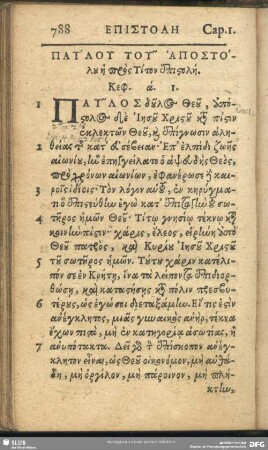 788 ΕΠΙΣΤΟΛΗ Cap.1.
ΠΑΥΛΟΥ ΤΟΥ ἈΠΟΣΤΌ-
λου ἡ πρὸς Τίτον Ἐπιστολή.
Κεφ. ά. 1.
1 ΠΑΥΛΟΣ δοῦλος Θεοῦ, ἀπό-
στολος δὲ Ἰησοῦ Χριστοῦ κατὰ πίστιν
ἐκλεκτῶν Θεοῦ, καὶ ἐπίγνωσιν ἀλη-
2 θείας τῆς κατ' εὐσέβειαν· Ἐπ' ἐλπίδι ζωῆς
αἰωνίου, ἣν ἐπηγγείλατο ὁ ἀψευδὴς Θεὸς,
3 πρὸ χρόνων αἰωνίων, ἐφανέρωσε δὲ και-
ροῖς ἰδίοις· Τὸν λόγον αὑτοῦ, ἐν κηρύγμα-
τι ὃ ἐπιστεύθην ἐγὼ κατ' ἐπιταγὴν τοῦ σω-
4 τῆρος ἡμῶν Θεοῦ· Τίτῳ γνησίῳ τέκνῳ κατὰ
κοινὴν πίστιν· χάρις, ἔλεος, εἰρήνη ἀπὸ
Θεοῦ πατρὸς, καὶ Κυρίου Ἰησοῦ Χριστοῦ
5 τοῦ σωτῆρος ἡμῶν. Τούτου χάριν κατέλι-
πόν σε ἐν Κρήτῃ, ἵνα τὰ λείποντα ἐπιδιορ-
θώσῃ, καὶ καταστήσῃς κατὰ πόλιν πρεσβυ-
6 τέρους, ὡς ἐγώ σοι διεταξάμην. Εἴ τις ἐστὶν
ἀνέγκλητος, μιᾶς γυναικὸς ἀνὴρ, τέκνα
ἔχων πιστὰ, μὴ ἐν κατηγορίᾳ ἀσωτίας, ἢ
7 ἀνυπότακτα. Δεῖ γὰρ τὸν ἐπίσκοπον ἀνέγ-
κλητον εἶναι, ὡς Θεοῦ οἰκονόμον, μὴ αὐθά-
δη, μὴ ὀργίλον, μὴ πάροινον, μὴ πλή-
κτην,
SLUB
DFG